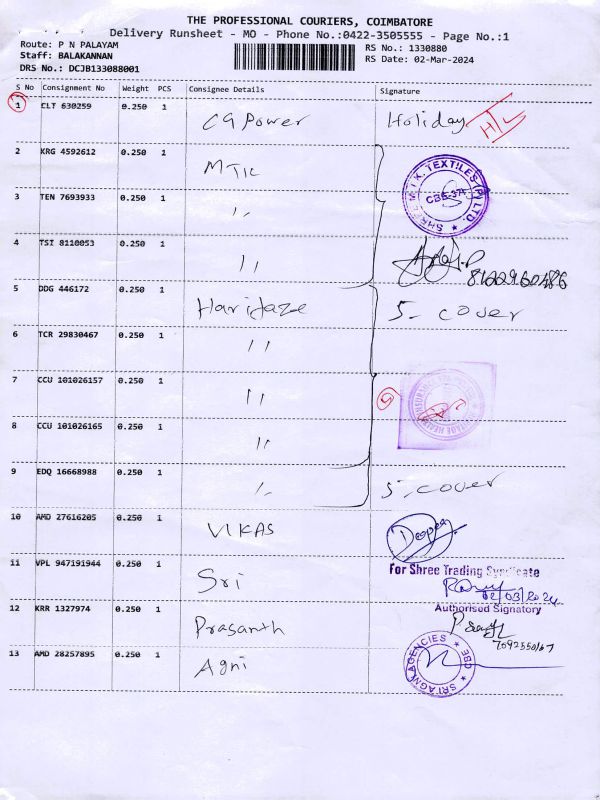 THE PROFESSIONAL COURIERS, COIMBATORE
Delivery Runsheet - MO - Phone No.:0422-3505555 - Page No.:1
Route: P N PALAYAM
RS No.: 1330880
Staff: BALAKANNAN
RS Date: 02-Mar-2024
DRS No.: DCJB133088001
S No Consignment No Weight PCS Consignee Details Signature
1 CLT 630259 0.250 1 CG Power Holiday H/L
2 KRG 4592612 0.250 1 MTIC
SHREE M.T.K. TEXTILES (P) LTD.
CBE-37
3 TEN 7693933 0.250 1 ''
4 TSI 8110053 0.250 1 ''
5 DDG 446172 0.250 1 5- cover
6 TCR 29830467 0.250 1 ''
7 CCU 101026157 0.250 1 ''
5
8 CCU 101026165 0.250 1 ''
9 EDQ 16668988 0.250 1 '' 5-cover
10 AMD 27616205 0.250 1 VIKAS
11 VPL 947191944 0.250 1 Sri
For Shree Trading Syndicate
02/03/2024
Authorised Signatory
12 KRR 1327974 0.250 1 Prasanth
13 AMD 28257895 0.250 1 Agni
SRI AGNI AGENCIES CBE